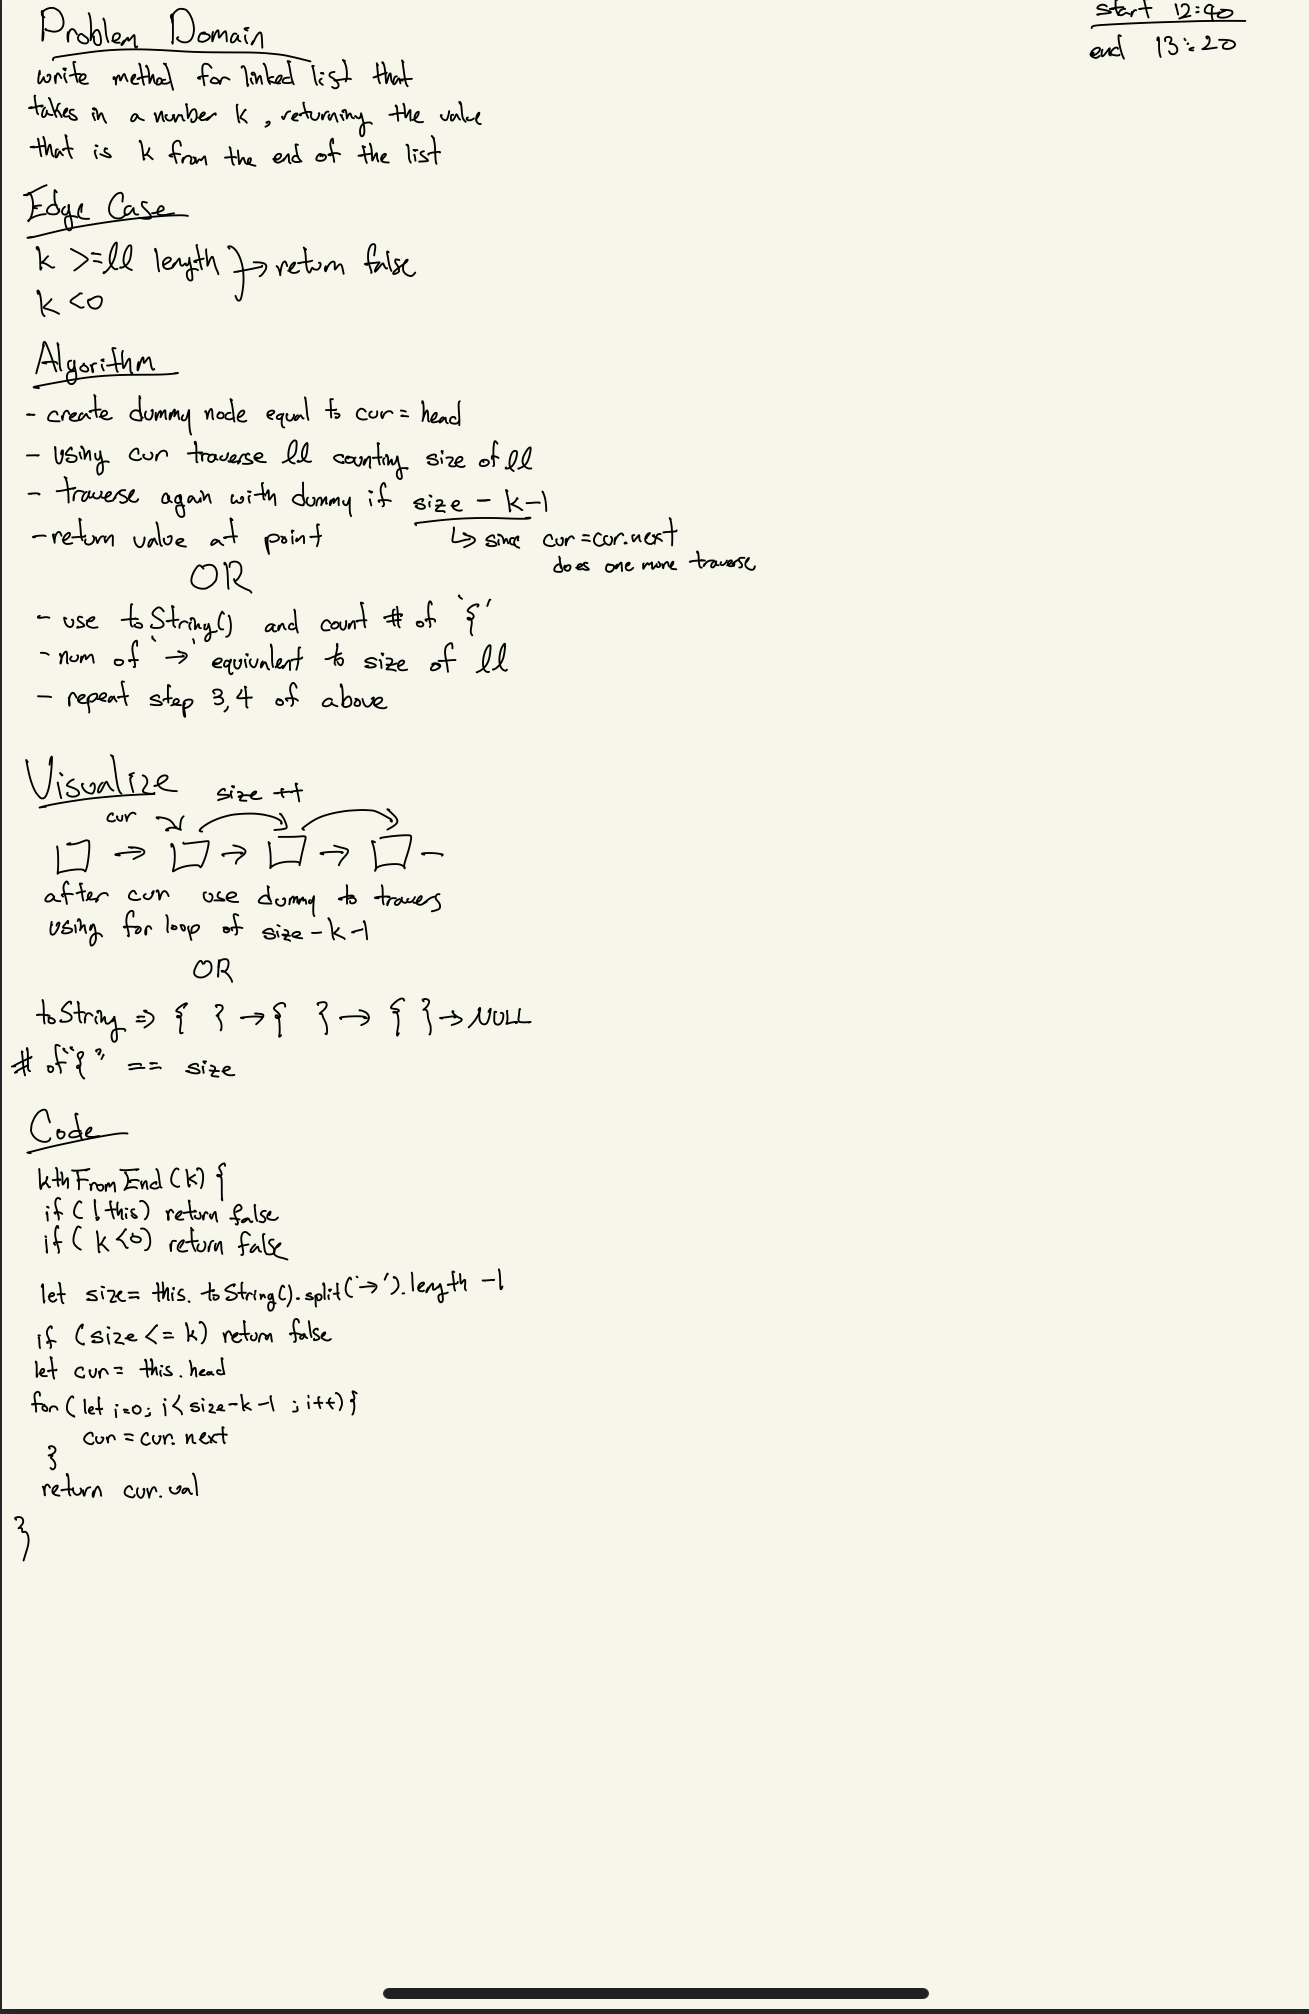 Problem Domain
start 12:40
end 13:20
write method for linked list that
takes in a number k, returning the value
that is k from the end of the list
Edge Case
k >= ll length } → return false
k < 0
Algorithm
- create dummy node equal to cur = head
- using cur traverse ll counting size of ll
- traverse again with dummy if size - k - 1
- return value at point
↳ since cur = cur.next
does one more traverse
OR
- use toString() and count # of '{'
- num of '→' equivalent to size of ll
- repeat step 3,4 of above
Visualize
size ++
cur
□ → □ → □ → □ —
after cur use dummy to travers
using for loop of size - k - 1
OR
toString => { } → { } → { } → NULL
# of "{" == size
Code
kthFromEnd(k) {
if (!this) return false
if (k < 0) return false
let size = this.toString().split('→').length - 1
if (size <= k) return false
let cur = this.head
for (let i=0; i < size-k-1 ; i++) {
cur = cur.next
}
return cur.val
}